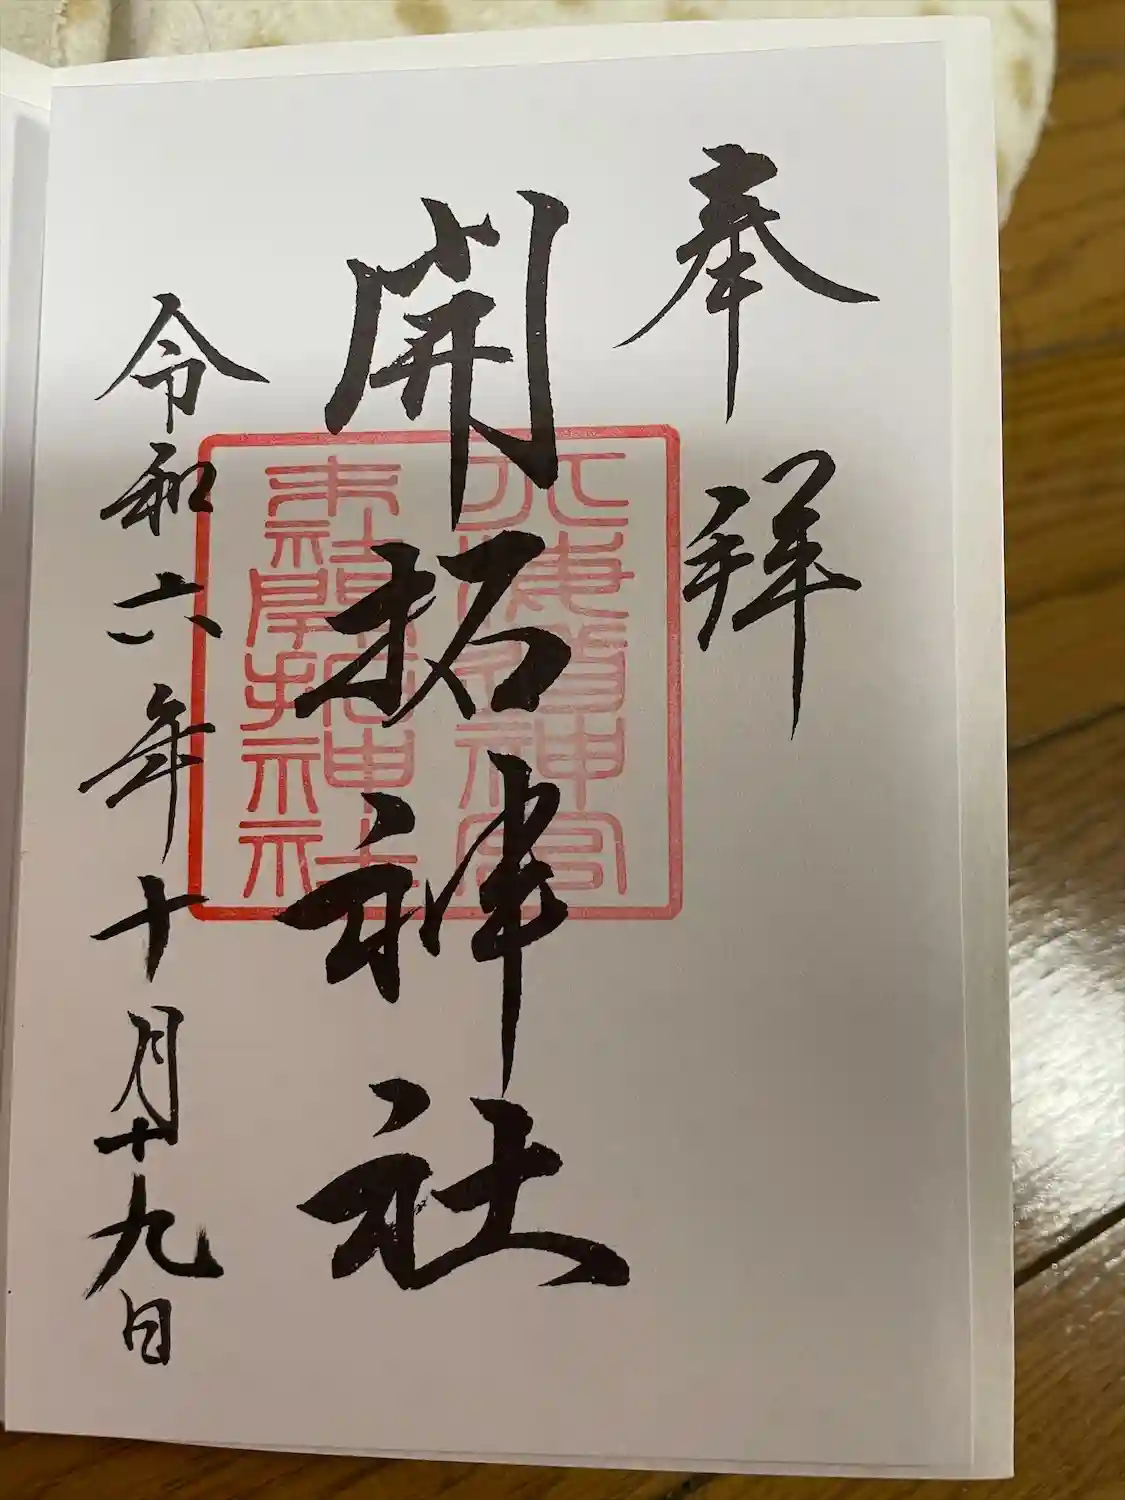 奉拝
開拓神社
北海道神宮
末社開拓神社
令和六年十月十九日